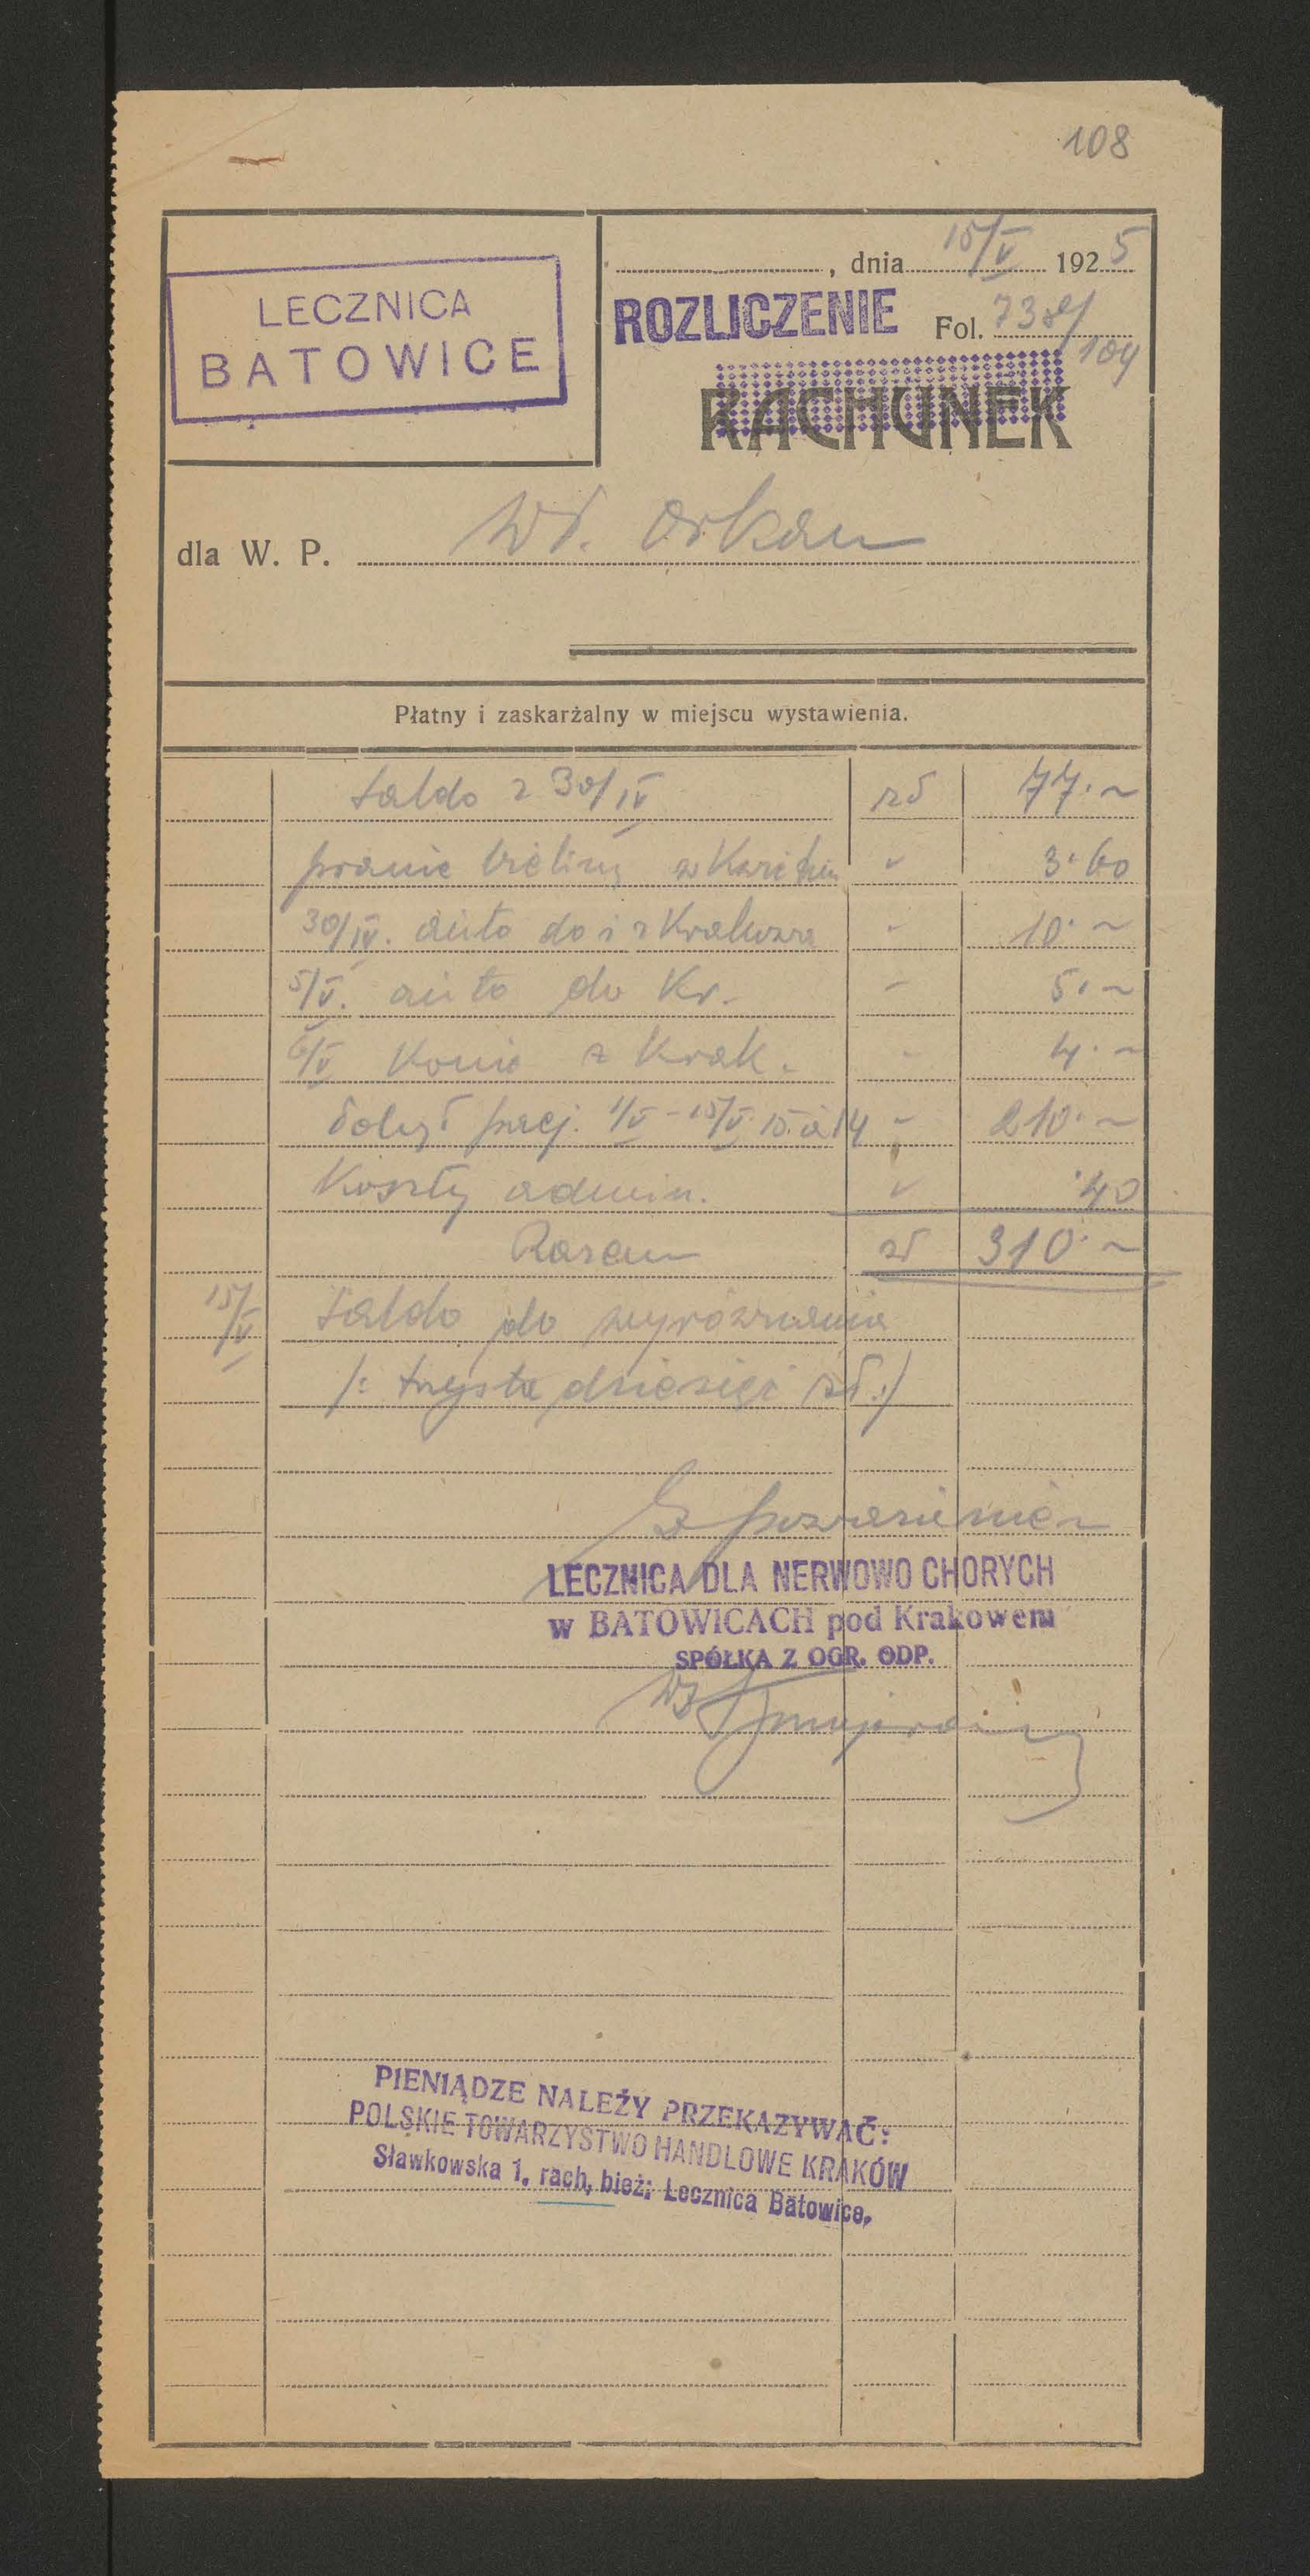 108
LECZNICA
BATOWICE
, dnia 15/V 1925
ROZLICZENIE
Fol. 738/
104
RACHUNEK
dla W. P. Wł. Orkan
Płatny i zaskarżalny w miejscu wystawienia.
Saldo z 30/IV zł 77.~
pranie bielizny w Kwietniu " 3.60
30/IV. auto do i z Krakowa - 10.~
5/V. auto do Kr. - 5.~
6/V Konie z Krak. - 4.~
Pobyt pacj. 1/V - 15/V 15 à 14 - 210.~
Koszty admin. " .40
Razem zł 310.~
15/V Saldo do wyrównania
/: trzysta dziesięć zł :/
Z poważaniem
LECZNICA DLA NERWOWO CHORYCH
w BATOWICACH pod Krakowem
SPÓŁKA Z OGR. ODP.
PIENIĄDZE NALEŻY PRZEKAZYWAĆ:
POLSKIE TOWARZYSTWO HANDLOWE KRAKÓW
Sławkowska 1. rach. bież: Lecznica Batowice.